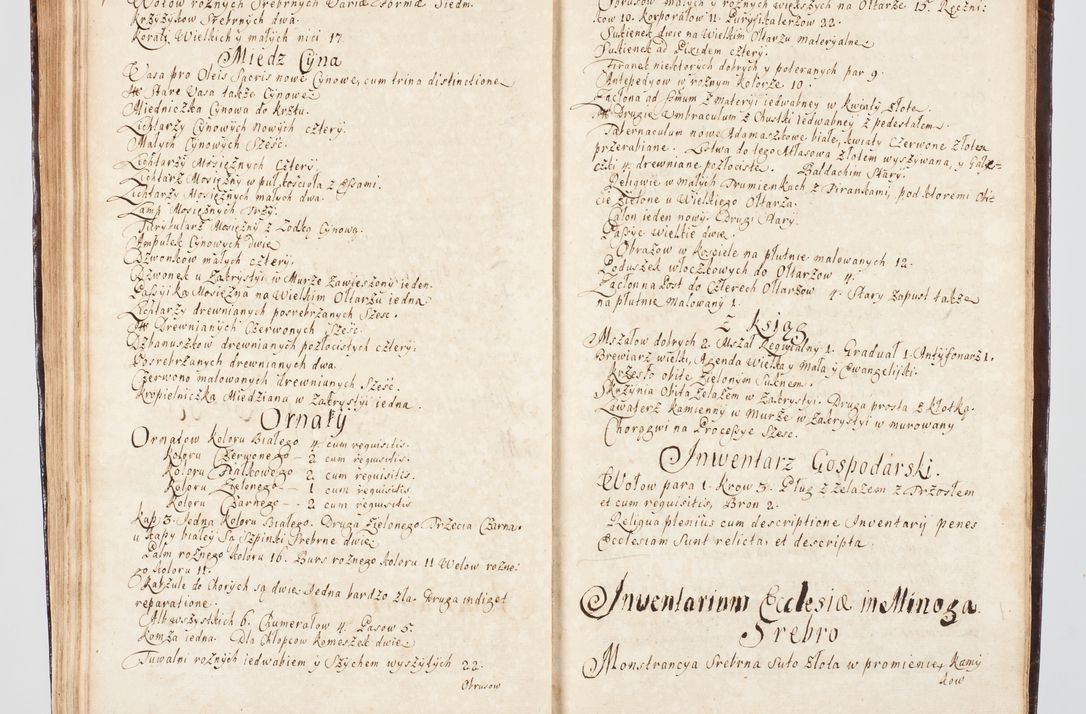 Wotow rożnych Srebrnych Variæ Formæ Siedm.
Krzyżykow Srebrnych dwa.
Korali Wielkich y małych nici 17.
Miedz Cyna
Vasa pro Oleis Sacris nowe Cynowe, cum trina distinctione
It Stare Vasa także Cynowe.
Miedniczka Cynowa do krztu.
Lichtarzy Cynowych nowych cztery.
Małych Cynowych Sześć.
Lichtarzy Mosiężnych Cztery.
Lichtarz Mosiężny w puł kościoła z Essami.
Lichtarzy Mosiężnych małych dwa.
Lamp Mosiężnych Trzy.
Turybularz Mosiężny z Łodką Cynową.
Ampułek Cynowych Dwie
Dzwonków małych cztery.
Dzwonek u Zakrystyi w Murze Zawieszony ieden.
Passyika Mosiężna na Wielkim Ołtarzu iedna
Lichtarzy drewnianych posrebrzanych Szesc.
It Drewnianych Czerwonych Sześć.
Dzbanuszkow drewnianych pozłocistych cztery.
Posrebrzanych drewnianych dwa.
Czerwono malowanych drewnianych Sześć.
Kropielniczka Miedziana w Zakrystyi iedna.
Ornaty
Ornatow koloru Białego 4 cum requisitis.
Koloru Czerwonego - 2 cum requisitis.
Koloru Białkowego - 2 cum requisitis.
Koloru Zielonego - 1 cum requisitis.
Koloru Czarnego - 2 cum requisitis
Kap 3. Jedna koloru Białego. Druga Zielonego Trzecia Czarna.
u Kapy białey Są Szpinki Srebrne dwie
Palm rożnego koloru 16. Burs rożnego koloru 11 Welow rożne-
go koloru 11.
Kapzule do Chorych są dwie. Jedna bardzo zła. Druga indiget
reparatione.
Alb wszystkich 6. Humerałow 4. Pasow 5.
Komża iedna. Dla Chłopcow komeszek dwie
Tuwalni rożnych iedwabiem y Szychem wyszytych 22.
Obrusow
Obrusow małych y rożnych większych na Ołtarze 15. Ręczni-
kow 10. Korporałow 11. Puryfikaterzow 22.
Sukienek dwie na Wielkim Ołtarzu materyalne
Sukienek ad Pixidem cztery.
Firanek niektorych dobrych y poteranych par 9.
Antepedyow w rożnym kolorze 10.
Zasłona ad Smum z materyi iedwabney w kwiaty złote.
It Drugie Umbraculum z Chustki iedwabney z pedestałem.
Tabernaculum nowe Adamaszkowe białe, kwiaty Czerwone złotem
przerabiane. Listwa do tego Atłasowa złotem wyszywana, y Gałe-
czki 4 drewniane pozłociste. Baldachim Stary.
Religwie w małych Trumienkach z Firankami, pod ktoremi Obi-
cie zielone u Wielkiego Ołtarza.
Całon ieden nowy. Drugi Stary.
Passye Wielkie dwie.
Obrazow w kościele na płutnie malowanych 12.
Poduszek włoczkowych do Ołtarzow 4.
Zasłon na Post do Czterech Ołtarzow 4. Stary Zapust także
na płutnie malowany 1.
Z ksiąg
Mszałow dobrych 2. Mszał Requialny 1. Graduał 1. Antyfonarz 1.
Brewiarz wielki, Agenda Wielka y mała y Ewangelijki.
Krzesło obite Zielonym Suknem.
Skrzynia Obita Zelazem w Zakrystyi. Druga prosta z kłotką.
Lawaterz kamienny w Murze w Zakrystyi w murowany
Chorągwi na Processye Szesc.
Inwentarz Gospodarski.
Wołow para 1. Krow 3. Pług z żelazem z Trzosłem
et cum requisitis, Bron 2.
Religua plenius cum descriptione Inventarij penes
Ecclesiam Sunt relicta, et descripta
Inventarium Ecclesiæ in Minoga
Srebro
Monstrancya Srebrna Suto złota w promienie, Kamy
kow